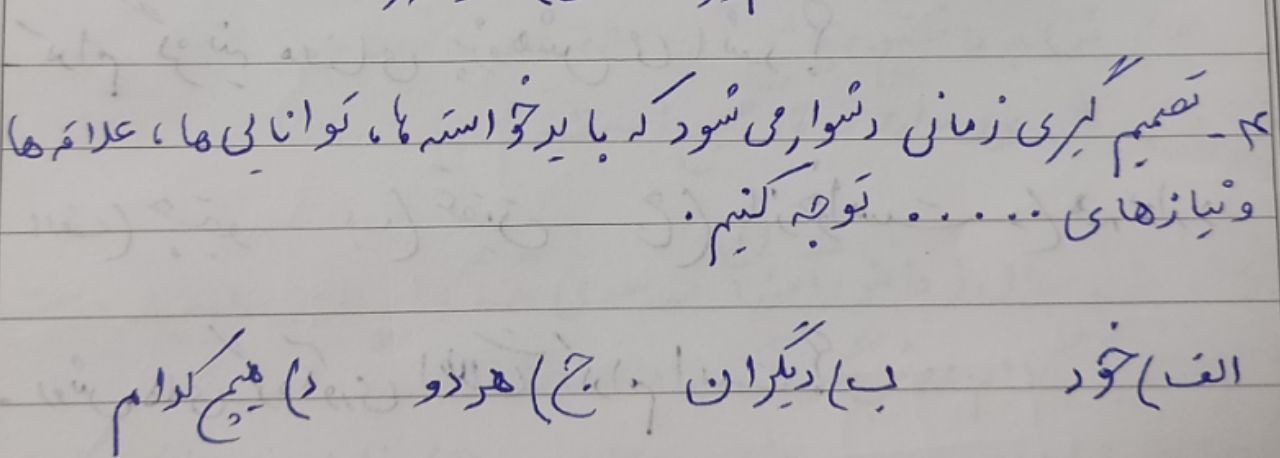 ۴- تصمیم گیری زمانی دشوار می شود که باید خواسته ها، توانایی ها، علاقه ها
و نیازهای ..... توجه کنیم.
الف) خود ب) دیگران ج) هر دو د) هیچ کدام